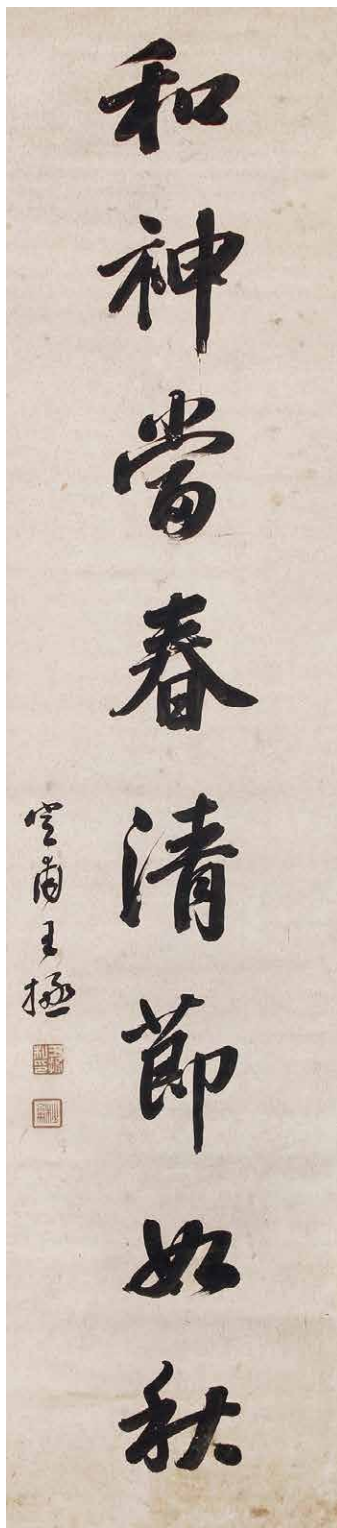 和神當春清節如秋
王拯